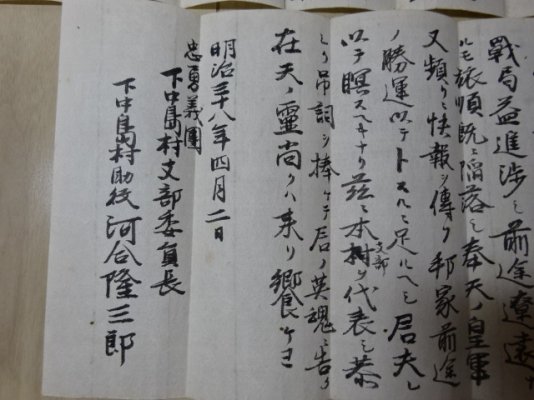 戰局益進渉シ前途遼遠ナ
ルモ旅順既ニ陥落シ奉天ノ皇軍
又頻リニ快報ヲ傳フ邦家前途
ノ勝運以テトスルニ足ルヘシ君夫レ
以テ瞑スヘキナリ茲ニ本村支部ヲ代表シ恭
シク吊詞ヲ捧ケテ君ノ英魂ニ告ク
在天ノ靈尚クハ来リ饗ケヨ
明治三十八年四月二日
忠勇義團
下中島村支部委員長
下中島村助役河合隆三郎